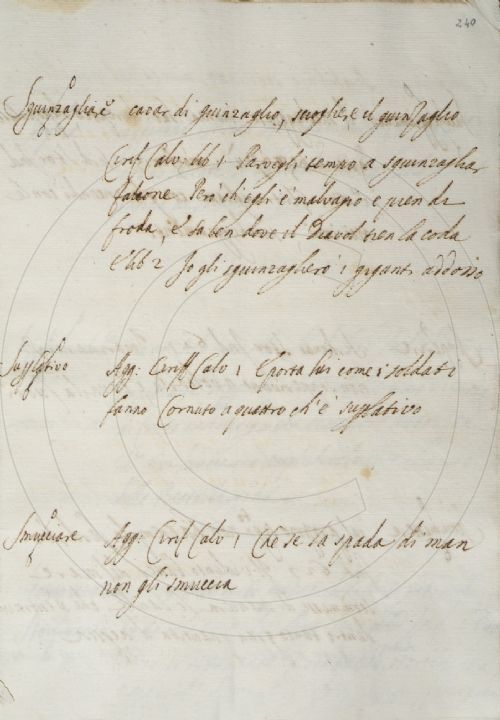 240
Sguinzagliare cavar di guinzaglio, sciogliere il guinzaglio
Cirif Calv: lib 1 Parvegli tempo a sguinzagliar
falcone Però ch'egli è malvagio e pien di
froda, E sa ben dove il Diavol tien la coda
E lib 2 Io gli sguinzaglierò i giganti addosso
Suppletivo Agg: Ciriff Calv 1 E porta lui come i soldati
fanno Cornuto a quattro ch'è
Smucciare Agg: Cirif Calv 1 Che se la spada di man
non gli smuccia